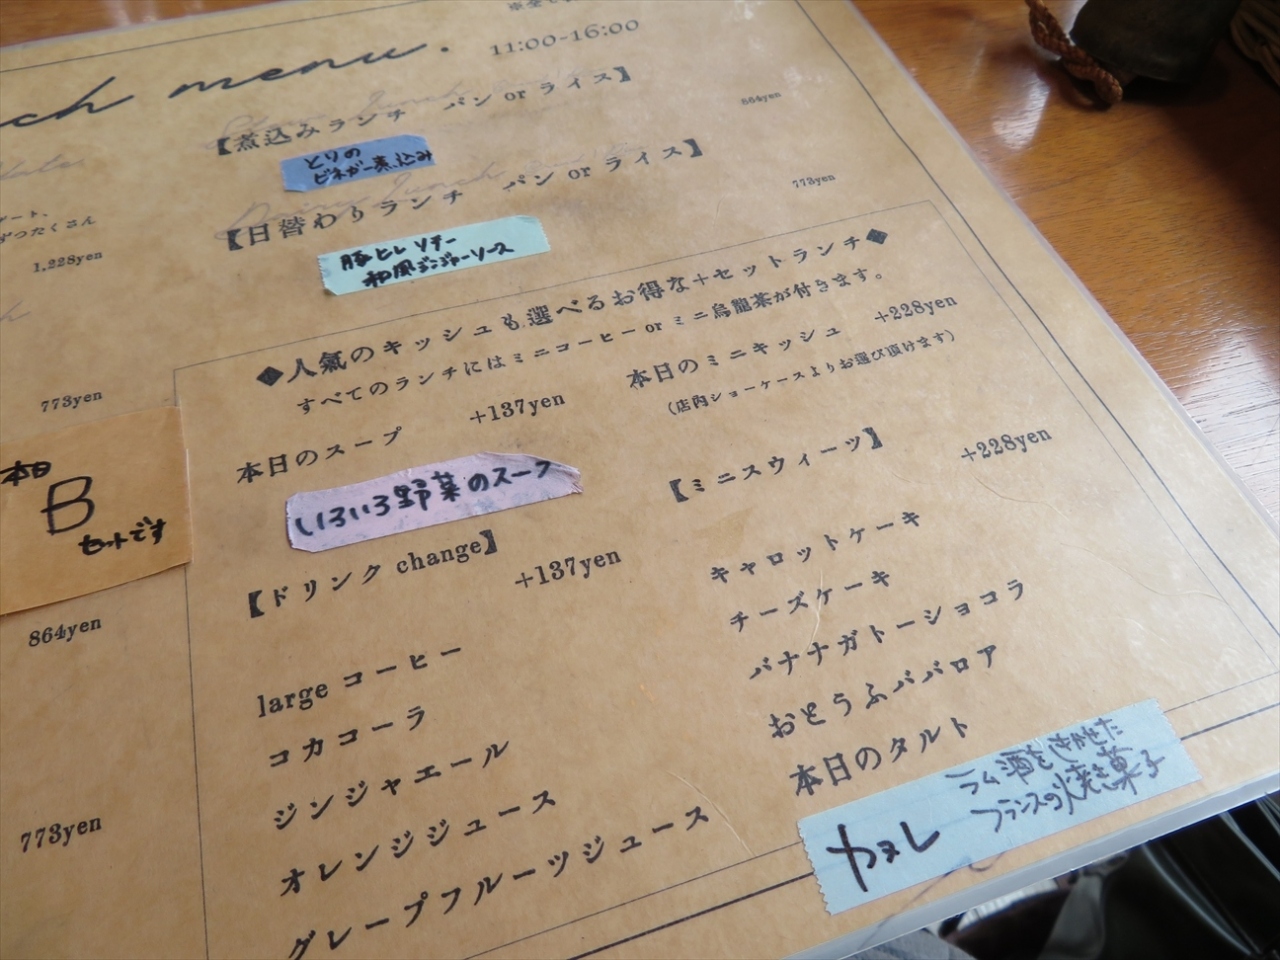 ch menu.
11:00-16:00
【煮込みランチ パン or ライス】
864yen
とりの
ビネガー煮込み
【日替わりランチ パン or ライス】
773yen
豚ヒレソテー
和風ジンジャーソース
ずつたくさん
1,228yen
773yen
本日
B
セットです
864yen
773yen
◆人氣のキッシュも選べるお得な+セットランチ◆
すべてのランチにはミニコーヒー or ミニ烏龍茶が付きます。
本日のスープ +137yen
いろいろ野菜のスープ
【ドリンク change】
+137yen
large コーヒー
コカコーラ
ジンジャエール
オレンジジュース
グレープフルーツジュース
本日のミニキッシュ +228yen
(店内ショーケースよりお選び頂けます)
【ミニスウィーツ】 +228yen
キャロットケーキ
チーズケーキ
バナナガトーショコラ
おとうふババロア
本日のタルト
カヌレ
ラム酒をきかせた
フランスの焼き菓子